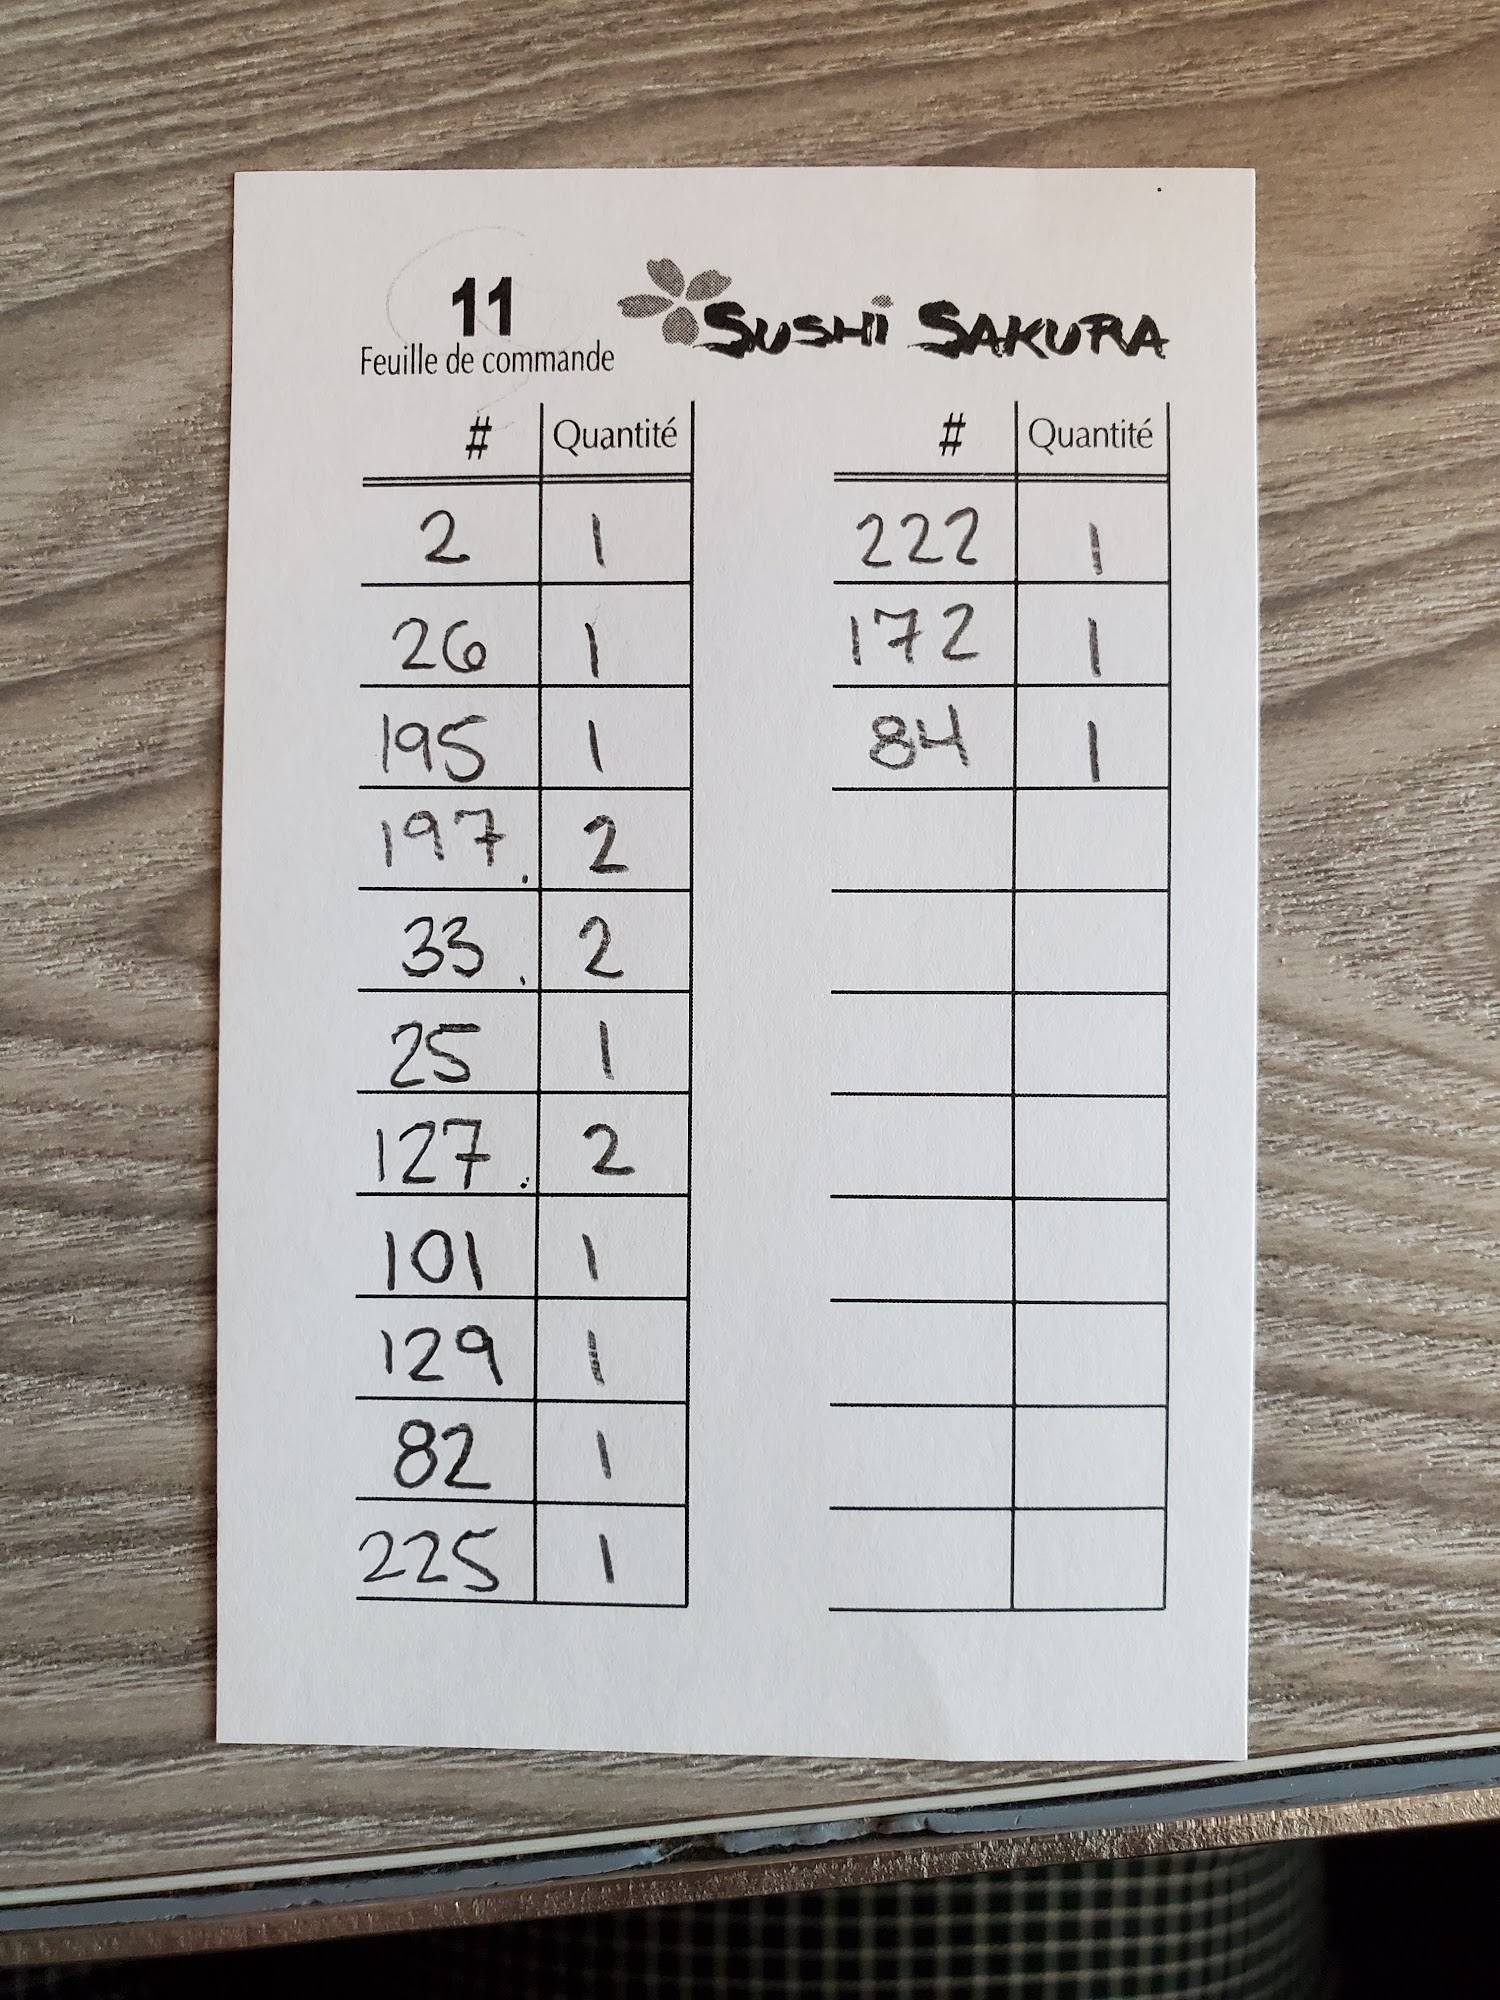 11
Feuille de commande
SUSHI SAKURA
# Quantité
2 1
26 1
195 1
197. 2
33. 2
25 1
127. 2
101 1
129 1
82 1
225 1
# Quantité
222 1
172 1
84 1